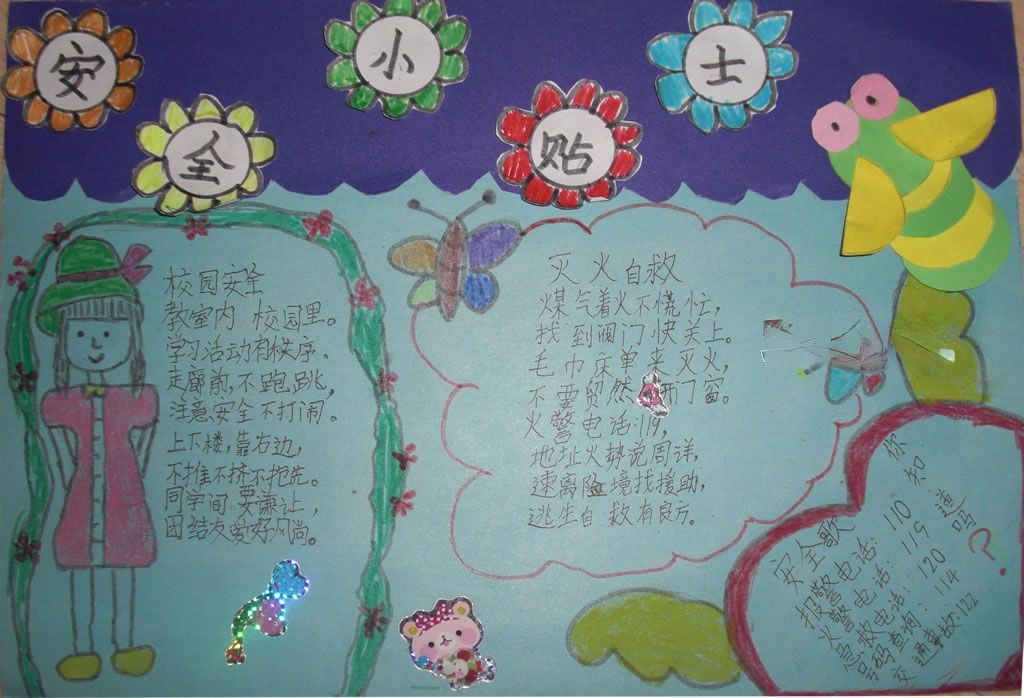 安全小贴士
校园安全
教室内 校园里。
学习活动有秩序、
走廊前,不跑跳,
注意安全不打闹。
上下楼,靠右边,
不推不挤不抢先。
同学间 要谦让,
团结友爱好风尚。
灭火自救
煤气着火不慌忙,
找到阀门快关上。
毛巾床单来灭火,
不要贸然 开门窗。
火警电话:119,
地址火势说周详,
速离险境找援助,
逃生自救有良方。
你知道吗?
安全歌
报警电话:110
火警电话:119
急救电话:120
号码查询:114
交通事故:122